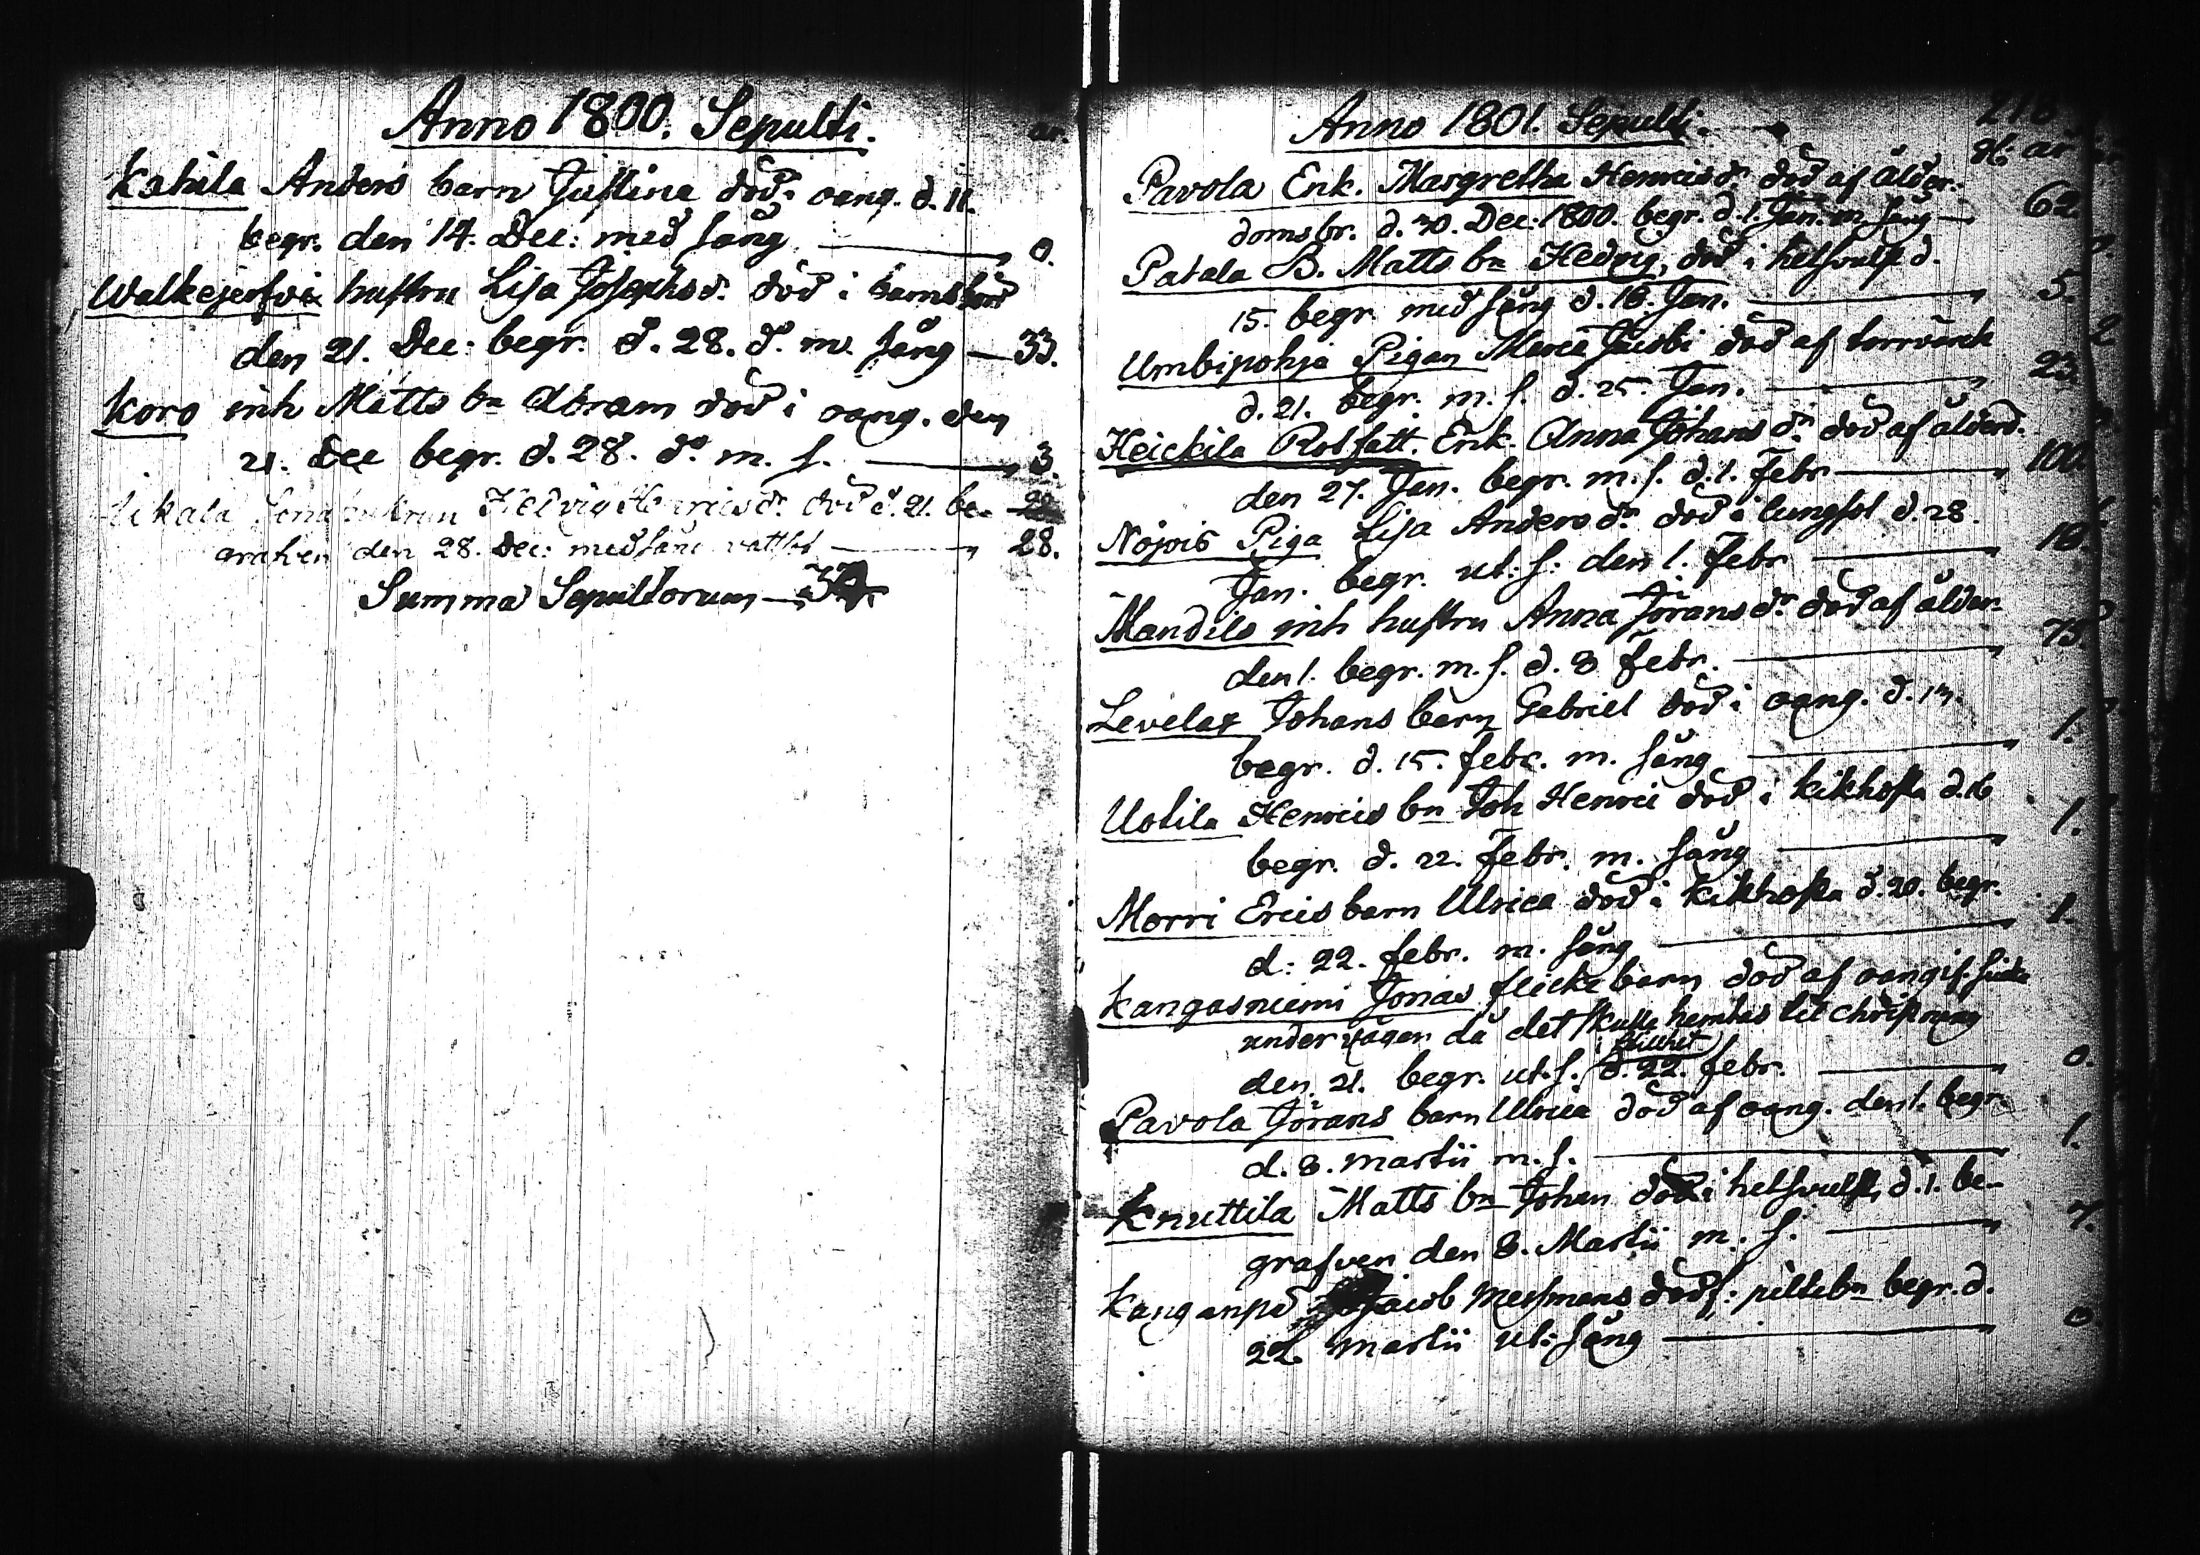 Anno 1800. Sepulti.
år.
Katila Anders barn Justina död i oang. d. 11.
begr. den 14. Dec: med sång — 0.
Walkejerfvi hustru Lisa Josephsdr. död i barnsbörd
den 21. Dec: begr. d. 28. do. m. sång — 33.
Koro inh Matts bn Abram död i oang. den
21. Dec begr. d. 28. do m. s. — 3.
Hedvig Henricsdr. död d. 21. be-
grafven den 28. Dec: med sång — 28.
Summa Sepultorum
Anno 1801. Sepulti.
218
ål. år
Pavola Enk. Margretha Henricsdr död af ålder-
domsbr. d. 30. Dec: 1800. begr. d. 1. Jan. m. sång — 62.
Patala B. Matts bn Hedvig, död i helsvulst d.
15. begr. med sång d. 18. Jan. — 5.
Umbipohja Pigan Maria Jacobi död af torrvärk
d. 21. begr. m. s. d. 25. Jan. — 23.
Heickila Rotfatt. Enk. Anna Johansdr död af ålderd.
den 27. Jan. begr. m. s. d. 1. Febr — 100.
Nojois Piga Lisa Andersdr död i lungsot d. 28.
Jan. begr. ut: s: den 1. Febr — 18.
Mandila inh hustru Anna Jöransdr död af ålder.
den 1. begr. m. s. d. 8 Febr. — 75.
Levelax Johans barn Gabriel död i oang. d. 13.
begr. d. 15. febr. m. sång — 1.
Uotila Henrics bn Joh Henric död i kikhosta d. 16
begr. d. 22. Febr. m. sång — 1.
Morri Erics barn Ulrica död i kikhosta d. 20. begr.
d: 22. febr. m. sång — 1.
Kangasniemi Jonas flicke barn död af oangif. siuka
under vägen då det skulle hemtas til christning
i stillhet
den 21. begr. ut. s. d. 22. febr. — 0.
Pavola Jörans barn Ulrica död af oang. den 1. begr.
d. 8. martii m. s. — 1.
Knuttila Matts bn Johan död i helsvulst d. 1. be-
grafven den 8. Martii m. s. — 7.
Kanganpä Jacob Messmans dödf: piltebn begr. d.
22. martii ut: sång — 0